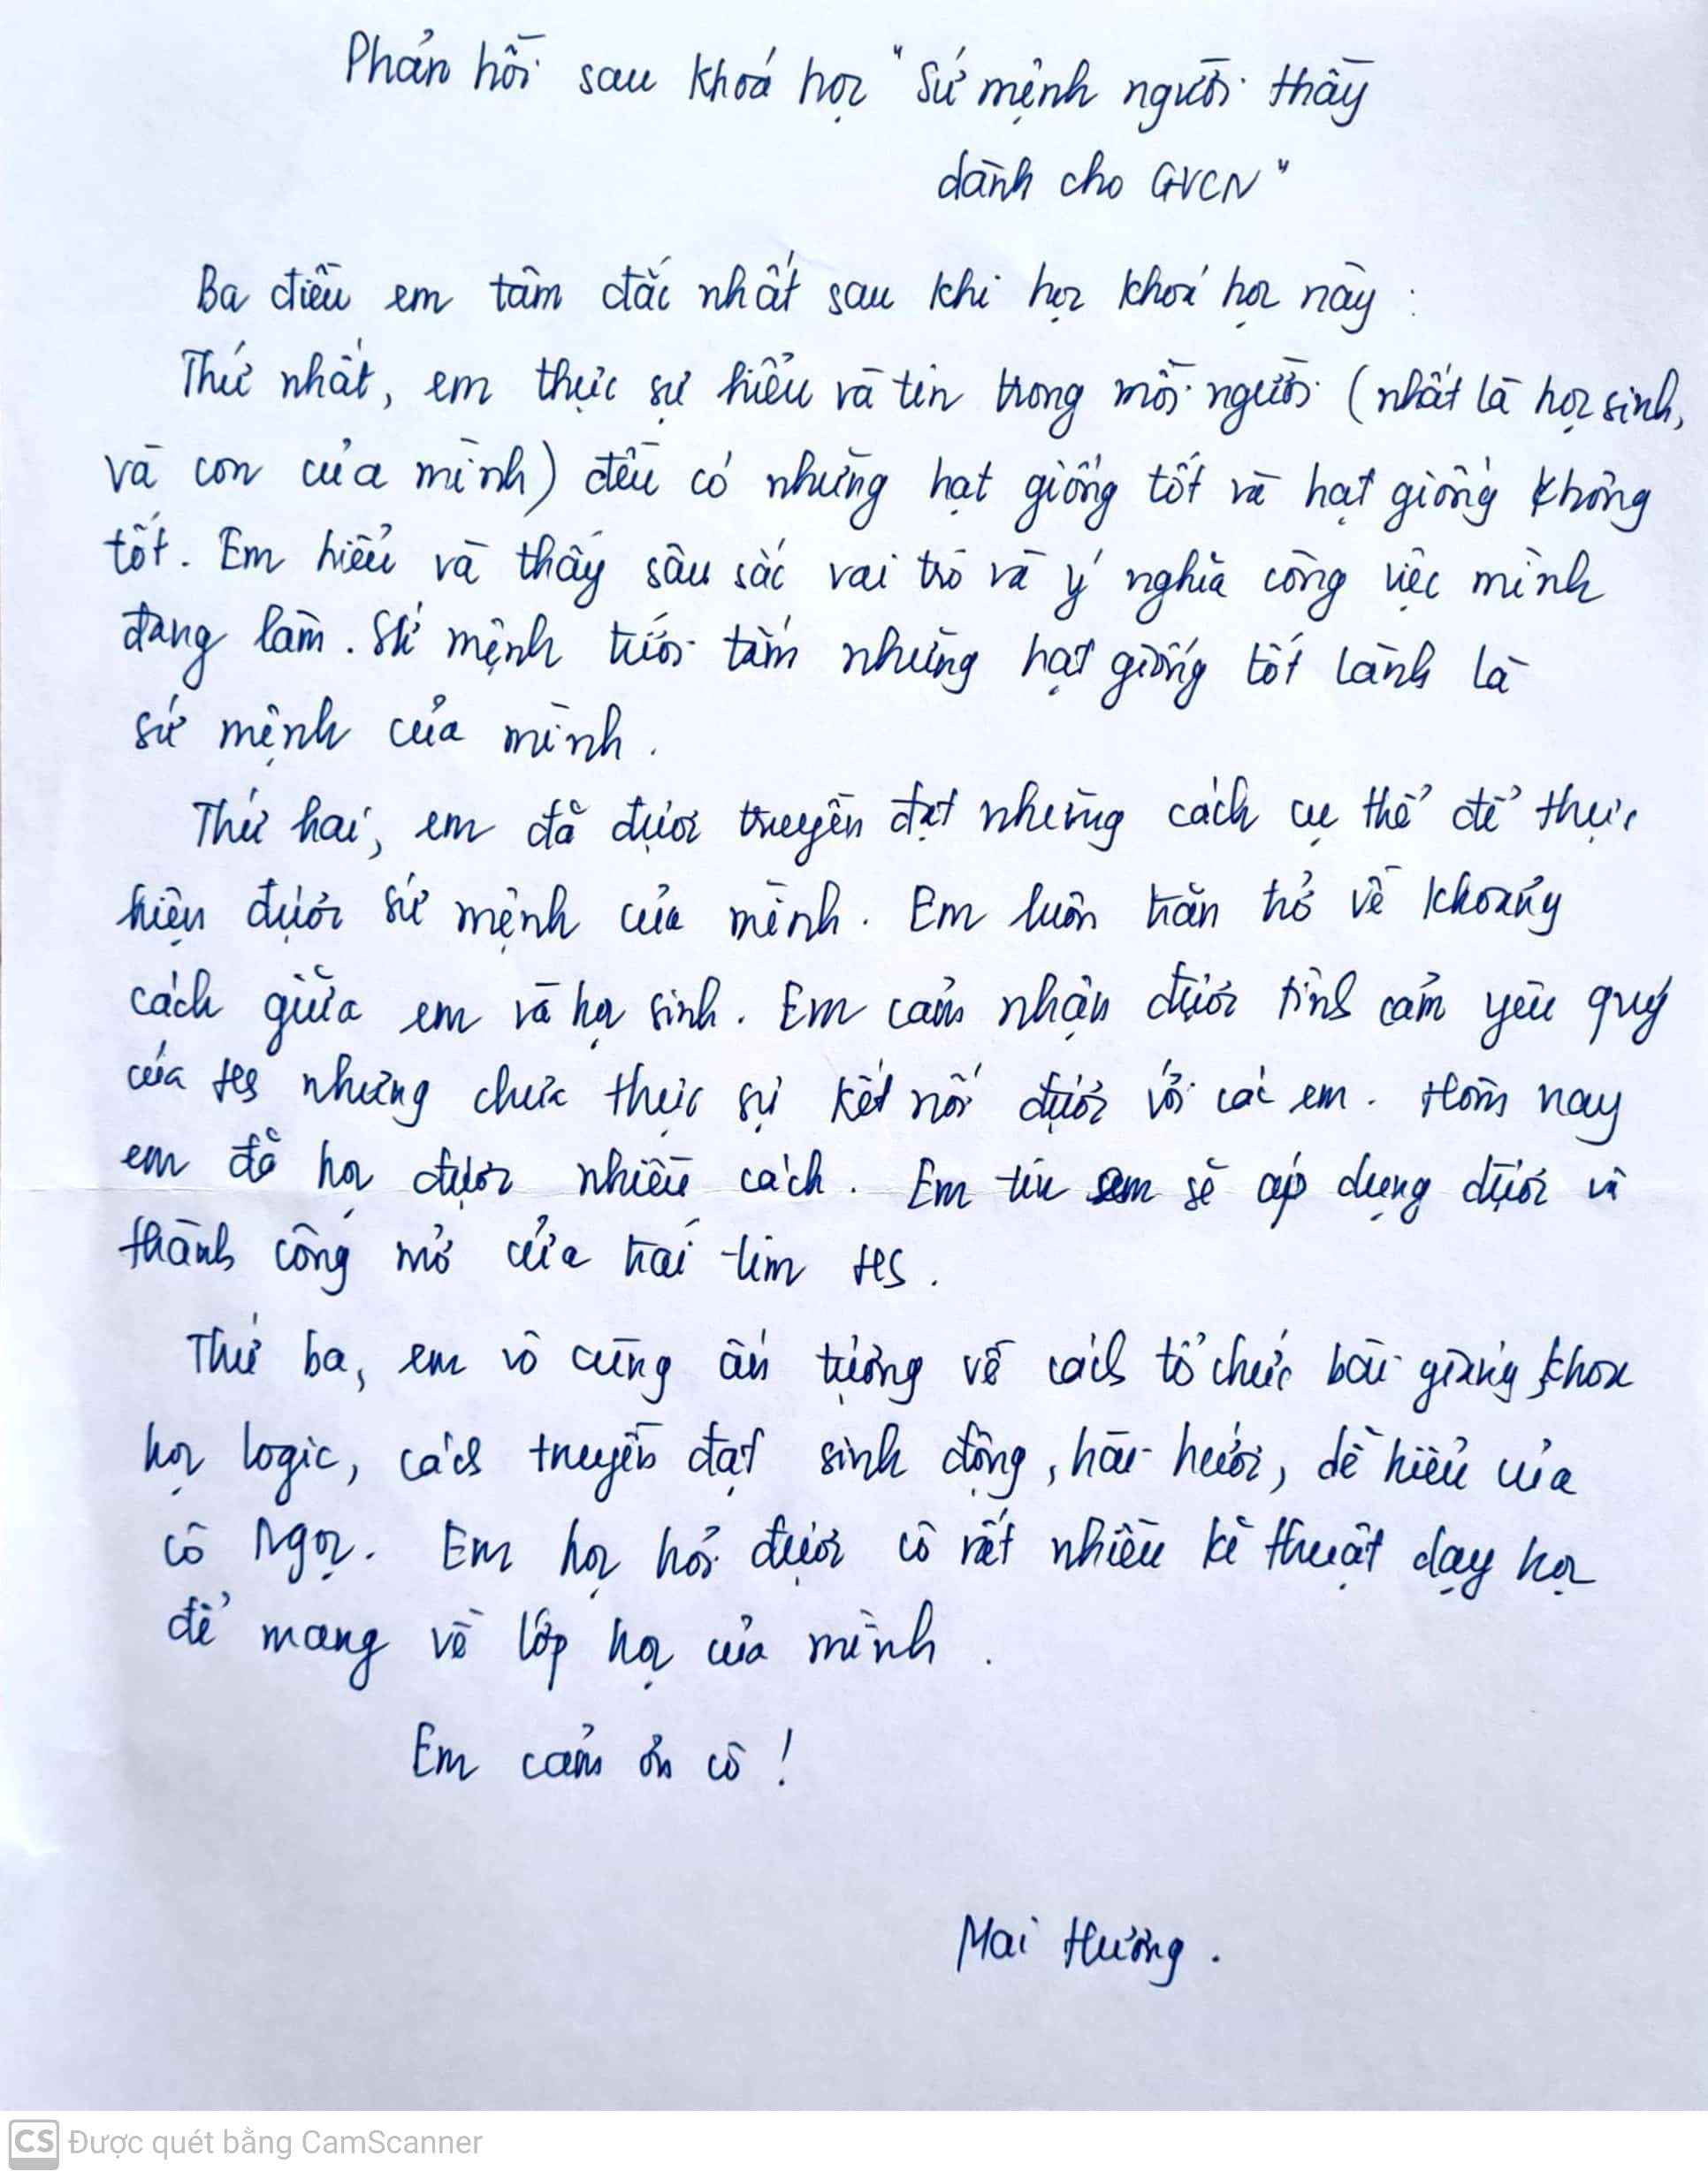 Phản hồi sau khoá học "Sứ mệnh người thầy
dành cho GVCN"
Ba điều em tâm đắc nhất sau khi học khoá học này :
Thứ nhất, em thực sự hiểu và tin trong mỗi người (nhất là học sinh,
và con của mình) đều có những hạt giống tốt và hạt giống không
tốt. Em hiểu và thấy sâu sắc vai trò và ý nghĩa công việc mình
đang làm. Sứ mệnh tưới tắm những hạt giống tốt lành là
sứ mệnh của mình.
Thứ hai, em đã được truyền đạt những cách cụ thể để thực
hiện được sứ mệnh của mình. Em luôn trăn trở về khoảng
cách giữa em và học sinh. Em cảm nhận được tình cảm yêu quý
của HS nhưng chưa thực sự kết nối được với các em. Hôm nay
em đã học được nhiều cách. Em tin em sẽ áp dụng được và
thành công mở cửa trái tim HS.
Thứ ba, em vô cùng ấn tượng về cách tổ chức bài giảng khoa
học logic, cách truyền đạt sinh động, hài hước, dễ hiểu của
cô Ngọc. Em học hỏi được cô rất nhiều kĩ thuật dạy học
để mang về lớp học của mình.
Em cảm ơn cô !
Mai Hương.
CS Được quét bằng CamScanner